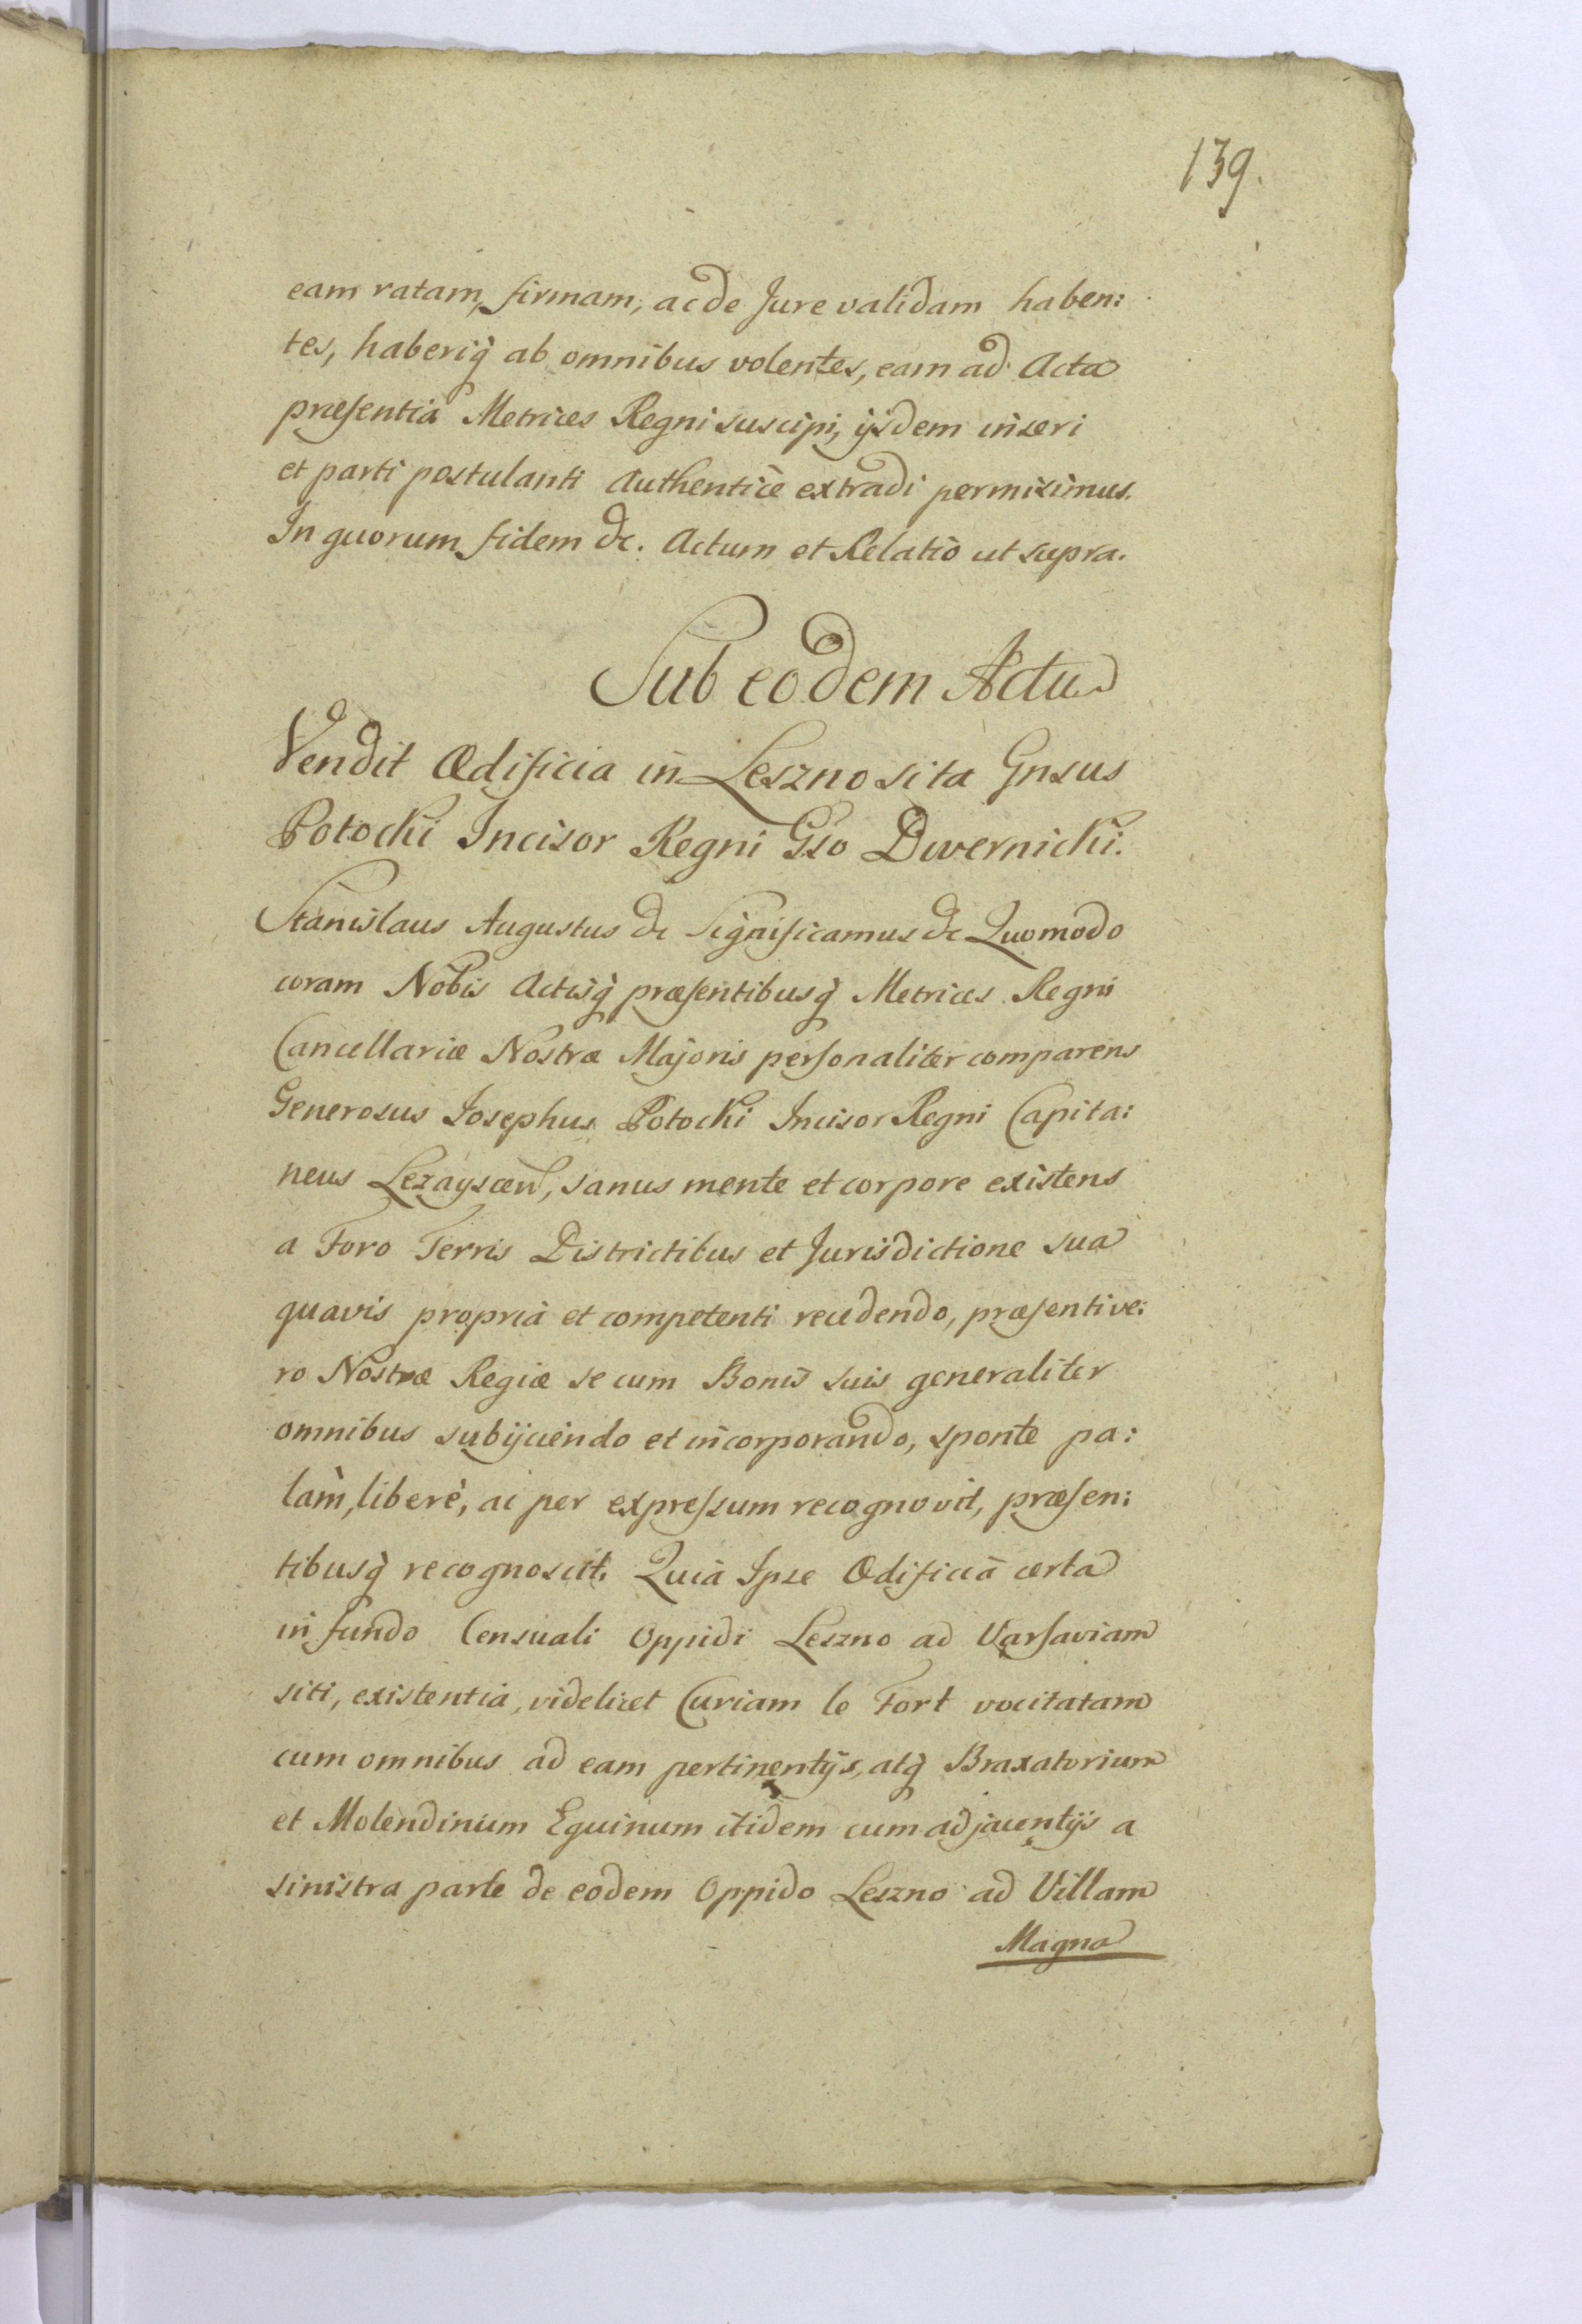 139.
eam ratam, firmam, ac de Jure validam haben:
tes, haberiq̀ ab omnibus volentes, eam ad Acta
præsentia Metrices Regni suscipi, ijsdem inseri
et parti postulanti Authenticè extradi permisimus.
In quorum fidem &c. Actum et Relatio ut supra.
Sub eodem Actu
Vendit Ædificia in Leszno sita Gnsus
Potocki Incisor Regni Gso Dwernicki.
Stanislaus Augustus &c Significamus &c Quomodo
coram Nobis Actisq̀ præsentibusq̀ Metrices Regni
Cancellariæ Nostræ Majoris personaliter comparens
Generosus Josephus Potocki Incisor Regni Capita:
neus Lezayscen, sanus mente et corpore existens
a Foro Terris Districtibus et Jurisdictione sua
quavis propria et competenti recedendo, præsenti ve:
ro Nostræ Regiæ se cum Bonis suis generaliter
omnibus subijciendo et incorporando, sponte pa:
làm, liberè, ac per expressum recognovit, præsen:
tibusq̀ recognoscit. Quià Ipse Ædificia certa
in fundo Censuali Oppidi Leszno ad Varsaviam
siti, existentia, videlicet Curiam le Fort vocitatam
cum omnibus ad eam pertinentijs, atq̀ Braxatorium
et Molendinum Equinum itidem cum adjacentijs a
sinistra parte de eodem Oppido Leszno ad Villam
Magna